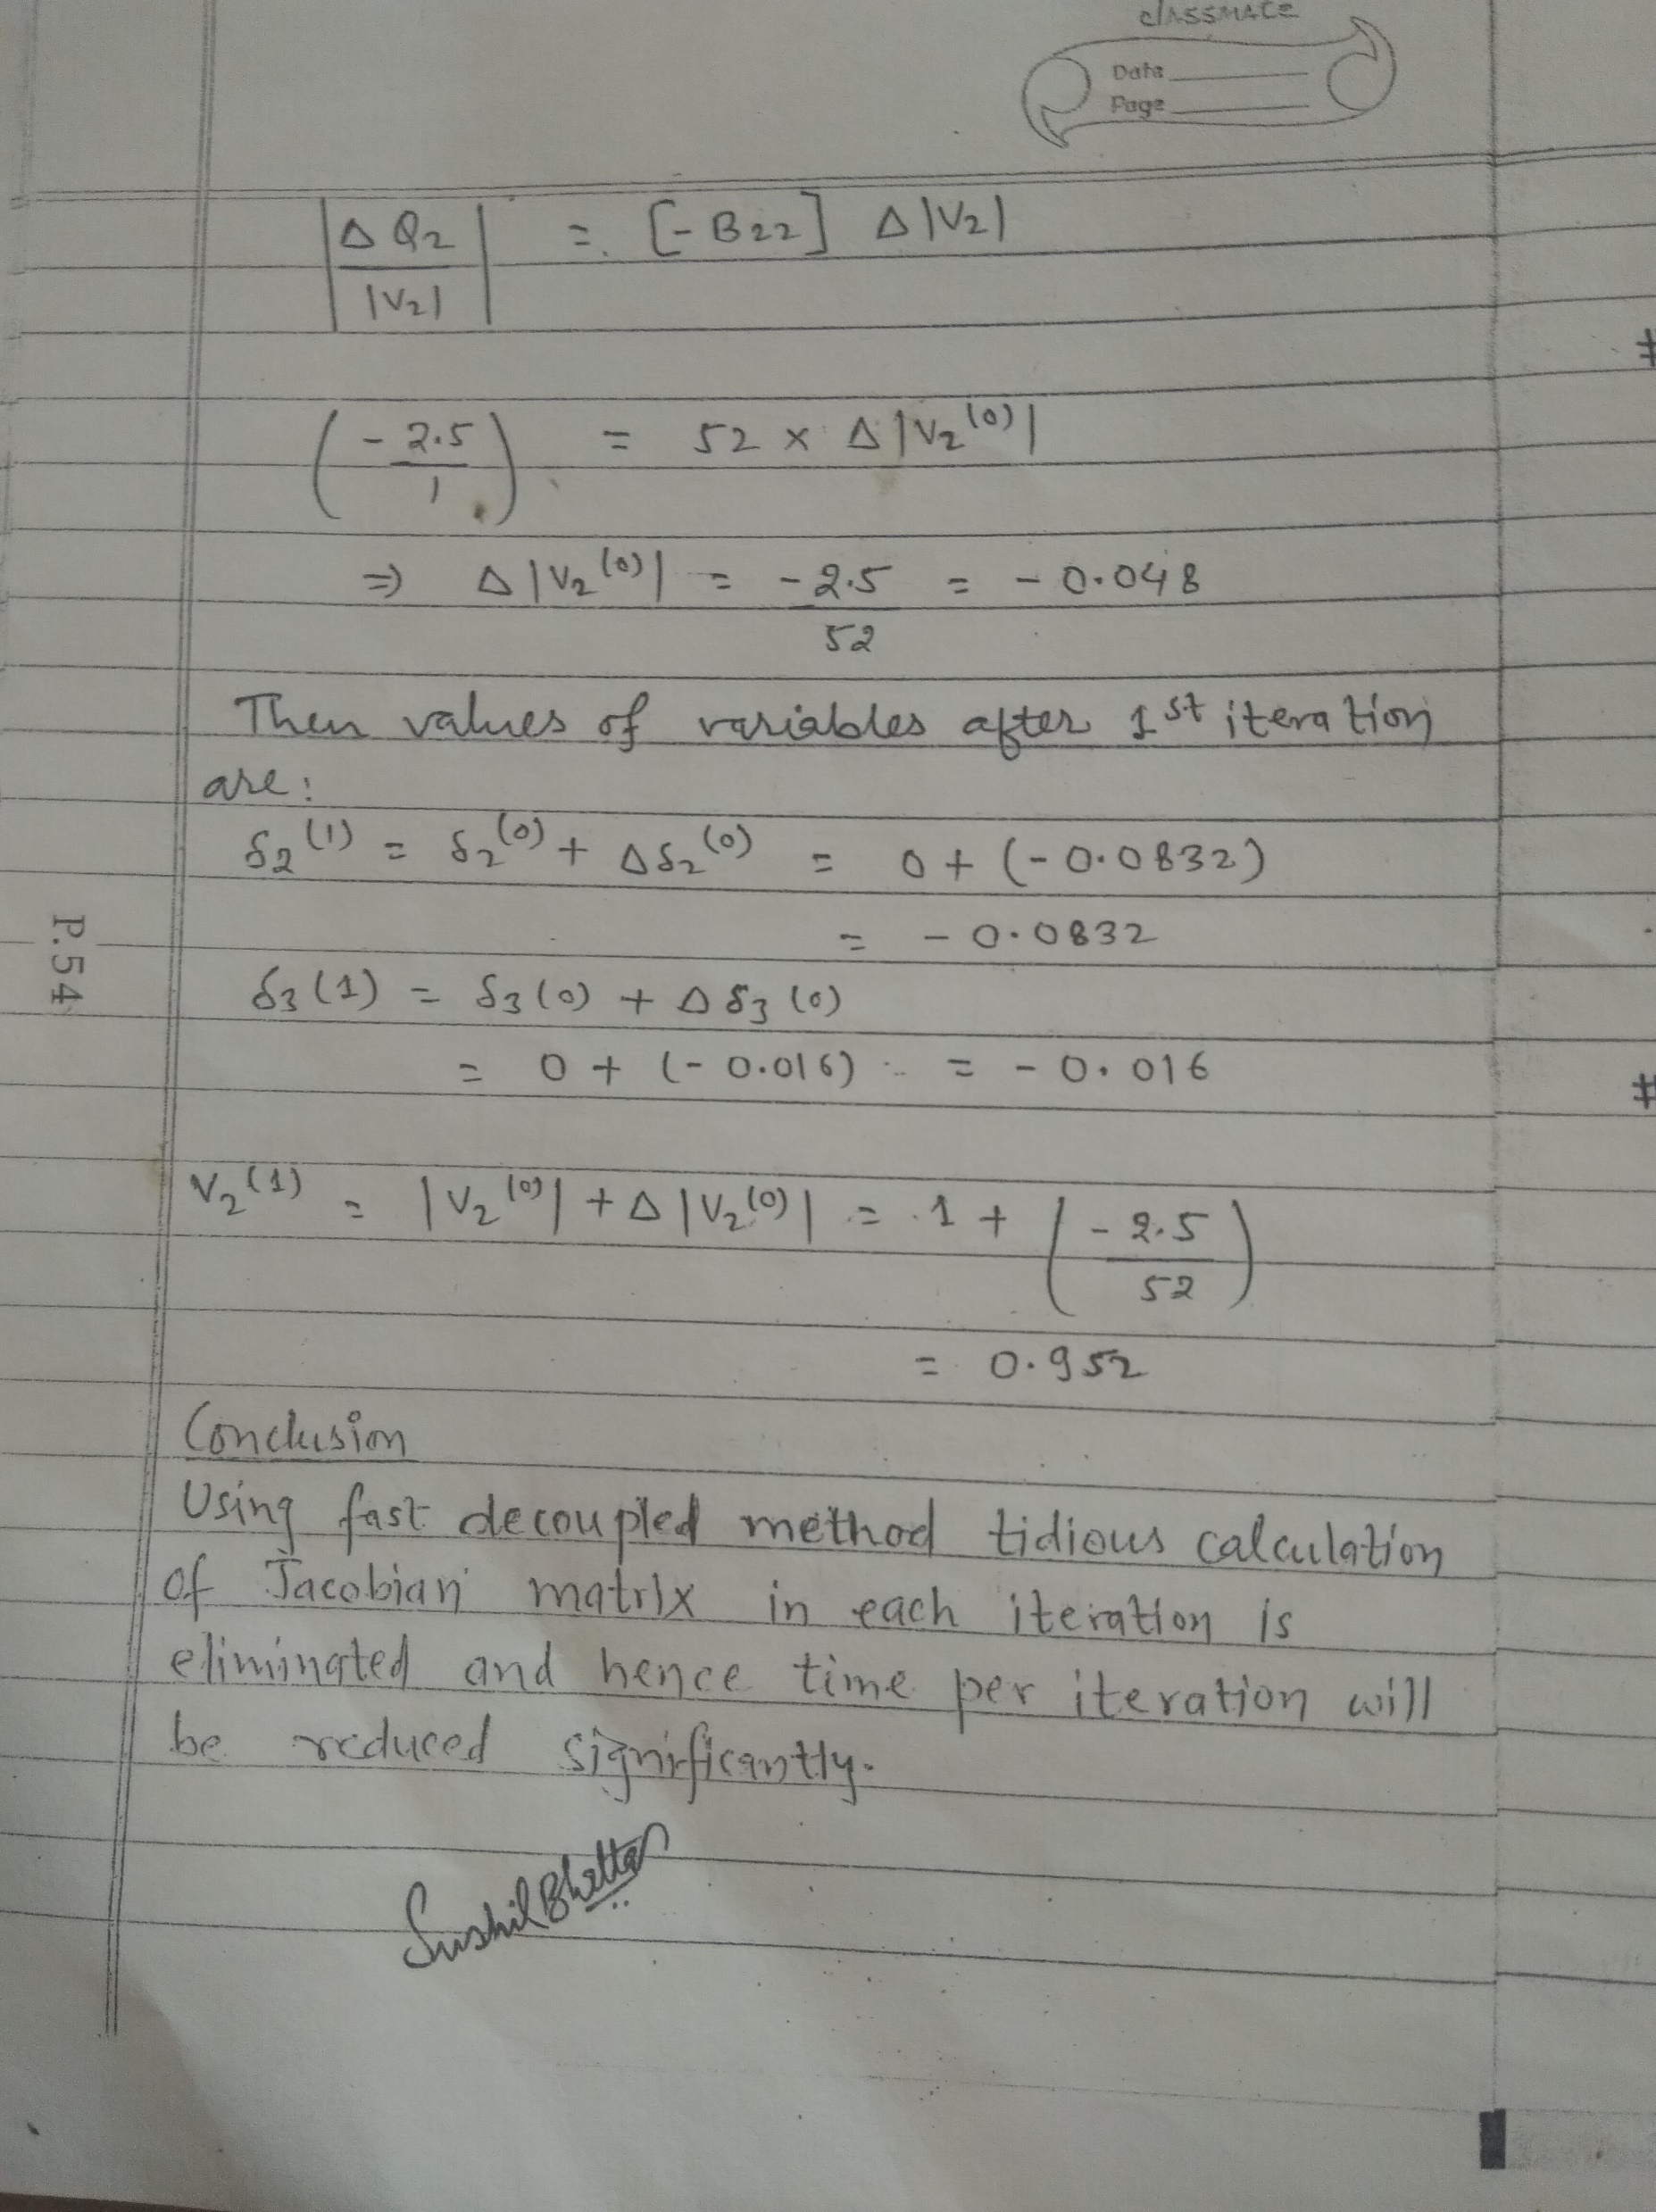 classmate
Date
Page
|ΔQ2 / |V2|| = [-B22] Δ|V2|
(-2.5 / 1) = 52 x Δ|V2^(0)|
=> Δ|V2^(0)| = -2.5 / 52 = -0.048
Then values of variables after 1st iteration
are:
δ2^(1) = δ2^(0) + Δδ2^(0) = 0 + (-0.0832)
= -0.0832
P.54
δ3(1) = δ3(0) + Δδ3(0)
= 0 + (-0.016) = -0.016
V2^(1) = |V2^(0)| + Δ|V2^(0)| = 1 + (-2.5 / 52)
= 0.952
Conclusion
Using fast decoupled method tidious calculation
of Jacobian matrix in each iteration is
eliminated and hence time per iteration will
be reduced significantly.
Sushil Bhattar
#
#